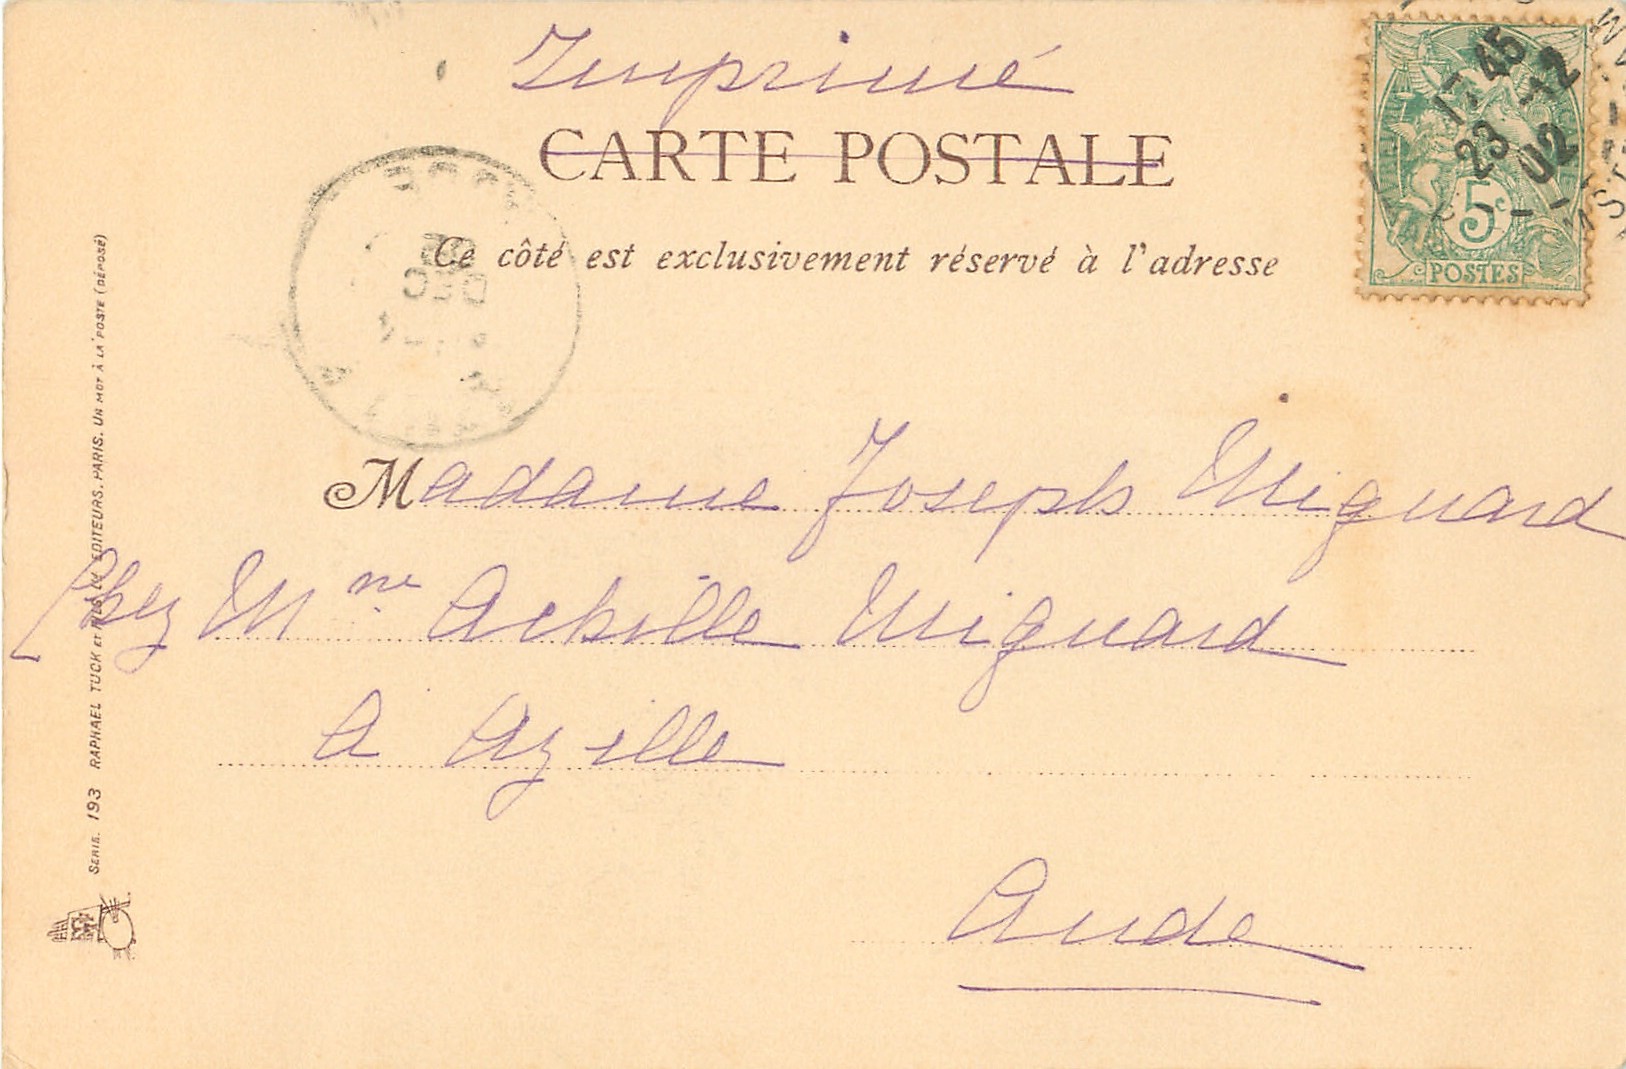 Imprimé
CARTE POSTALE
Ce côté est exclusivement réservé à l'adresse
17 45
23 -12
02
5c
POSTES
DEC
Madame Joseph Mignard
Chez Mme Achille Mignard
A Azille
Aude
SERIE. 193 RAPHAEL TUCK ET FILS, LD EDITEURS. PARIS. UN MOT À LA POSTE (DÉPOSÉ)